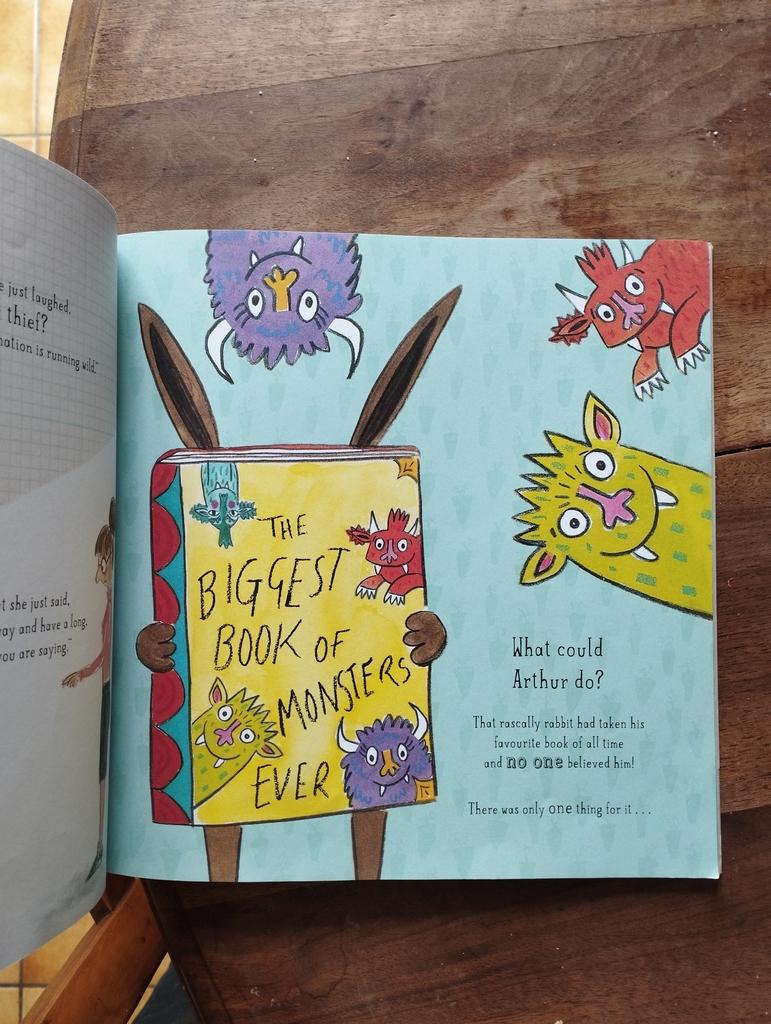 e just laughed,
thief?
nation is running wild."
t she just said,
way and have a long,
you are saying."
THE
BIGGEST
BOOK OF
MONSTERS
EVER
What could
Arthur do?
That rascally rabbit had taken his
favourite book of all time
and no one believed him!
There was only one thing for it . . .